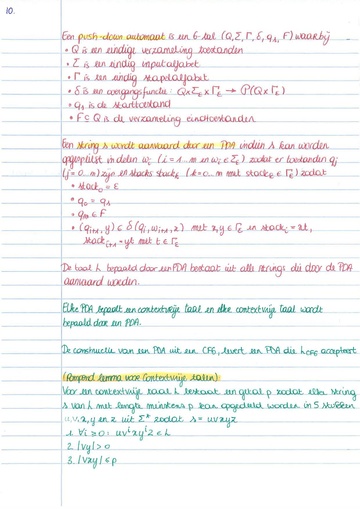 10.
Een push-down automaat is een 6-tal (Q, Σ, Γ, δ, q₁, F) waarbij
• Q is een eindige verzameling toestanden
• Σ is een eindig inputalfabet
• Γ is een eindig stapelalfabet
• δ is een overgangsfunctie: Q×Σ_ε×Γ_ε → P(Q×Γ_ε)
• q₁ is de starttoestand
• F⊆Q is de verzameling eindtoestanden
Een string s wordt aanvaard door een PDA indien s kan worden
opgesplitst in delen w_i (i=1..m en w_i ∈ Σ_ε) zodat er toestanden q_j
(j=0..m) zijn en stacks stack_k (k=0..m met stack_k ∈ Γ_ε) zodat
• stack₀ = ε
• q₀ = q₁
• q_m ∈ F
• (q_{i+1}, y) ∈ δ(q_i, w_{i+1}, x) met x,y ∈ Γ_ε en stack_i = xt,
stack_{i+1} = yt met t ∈ Γ_ε
De taal L bepaald door een PDA bestaat uit alle strings die door de PDA
aanvaard worden.
Elke PDA bepaalt een contextvrije taal en elke contextvrije taal wordt
bepaald door een PDA.
De constructie van een PDA uit een CFG, levert een PDA die L_CFG accepteert
(Pompend lemma voor Contextvrije talen)
Voor een contextvrije taal L bestaat een getal p zodat elke string
s van L met lengte minstens p kan opgedeeld worden in 5 stukken
u,v,x,y en z uit Σ* zodat s = uvxyz
1. ∀i≥0: uvⁱxyⁱz ∈ L
2. |vy|>0
3. |vxy| ≤ p